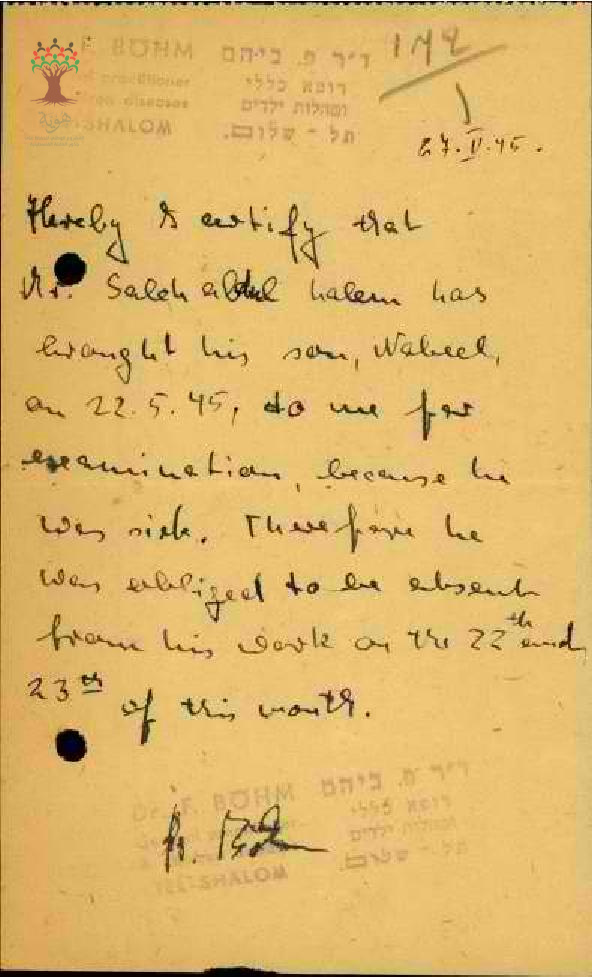 F. BÖHM ד״ר פ. ביהם
practitioner רופא כללי
diseases ומחלות ילדים
SHALOM תל - שלום.
172
27.V.45.
Hereby I certify that
Mr. Saleh abdul halem has
brought his son, Nabeel,
on 22.5.45, to me for
examination, because he
was sick. Therefore he
was obliged to be absent
from his work on the 22th and
23th of this month.
Dr. F. BÖHM ד״ר פ. ביהם
רופא כללי
ומחלות ילדים
TEL-SHALOM תל - שלום.
Dr. Böhm